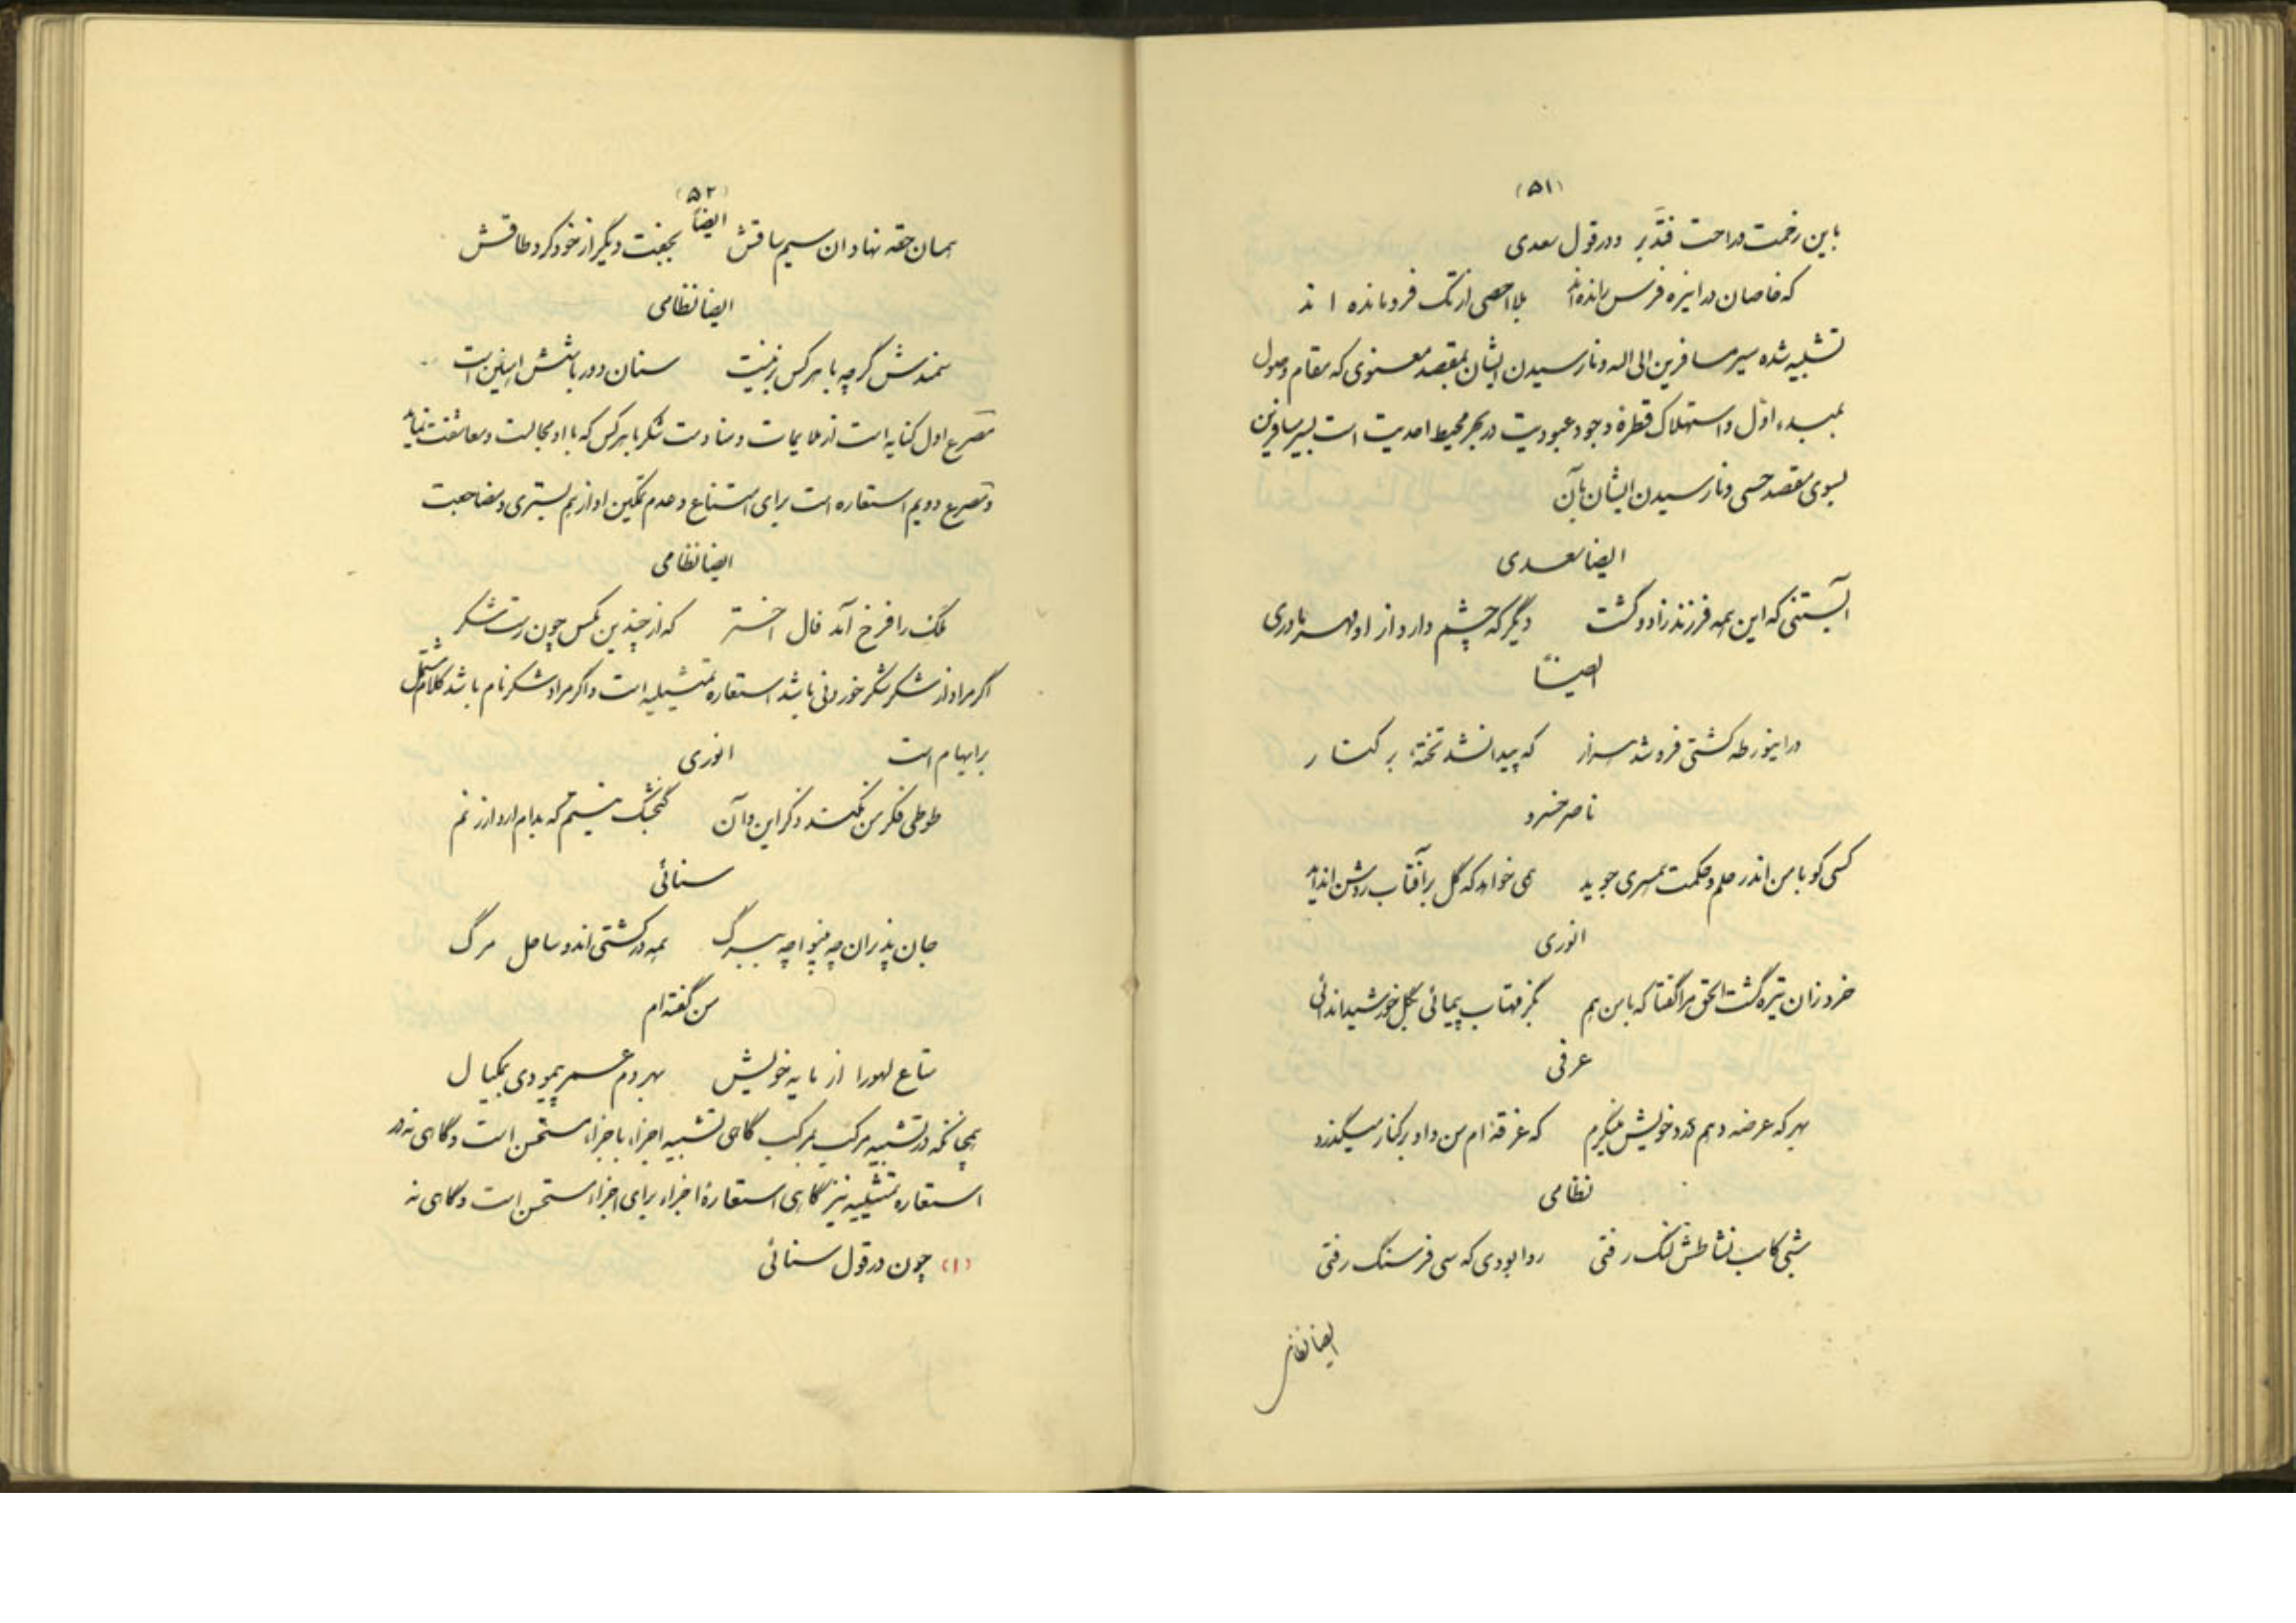 (۵۱)
باین زحمت و راحت فتدبر و در قول سعدی
که خاصان در اینره فرس رانده‌اند بلا احصی از تک فرومانده اند
تشبیه شده سیر مسافرین الی اله و نارسیدن ایشان بمقصد معنوی که مقام وصول
بمبدء اول و استهلاک قطرهٔ وجود عبودیت در بحر محیط احدیت است بسیر مسافرین
بسوی مقصد حسی و نارسیدن ایشان بآن
ایضا سعدی
آبستنی که این همه فرزند زاد و کشت دیگر که چشم دارد از او مهر مادری
ایضاً
در اینورطه کشتی فرو شد هزار که پیدا نشد تختهٔ بر کنار
ناصر خسرو
کسی کو با من اندر علم و حکمت همسری جوید همی خواهد که گل بر آفتاب روشن انداید
انوری
خرد زان تیره گشت الحق مرا گفتا که با من هم بگز مهتاب پیمائی بگل خورشید اندائی
عرفی
بهر که عرضه دهم درد خویش مینگرم که غرقه‌ام من و او بر کنار میگذرد
نظامی
شبی کاسب نشاطش لنگ رفتی روا بودی که سی فرسنگ رفتی
ایضا نظامی
(۵۲)
همان حقه نهاد ان سیم ساقش بجفت دیگر از خود کرد طاقش
ایضاً
ایضا نظامی
سمندش گرچه با هر کس بزینست سنان دور باشش اهنین است
مصرع اول کنایه است از ملایمات و منادمت شکر با هر کس که با او مجالست و معاشقت نماید
و مصرع دویم استعاره است برای امتناع و عدم تمکین او از هم بستری و مضاجعت
ایضا نظامی
ملک را فرخ آمد فال اختر که از چندین مکس چون رست شکر
اگر مراد از شکر شکر خوردنی باشد استعاره تمثیلیه است و اگر مراد شکر نام باشد کلام مشتمل
بر ایهام است انوری
طوطی فکر من نکند ذکر این و آن گنجشک نیستم که بدام ارد ارزنم
سنائی
جان پذیران چه بینوا چه ببرگ همه در کشتی‌اند و ساحل مرگ
من گفته‌ام
متاع لهورا از مایه خویش بهر دم عمر پیمودی بمکیال
همچانکه در تشبیه مرکب بمرکب گاهی تشبیه اجزاء باجزاء مستحسن است و گاهی نه در
استعاره تمثیلیه نیز گاهی استعارهٔ اجزاء برای اجزاء مستحسن است و گاهی نه
(۱) چون در قول سنائی